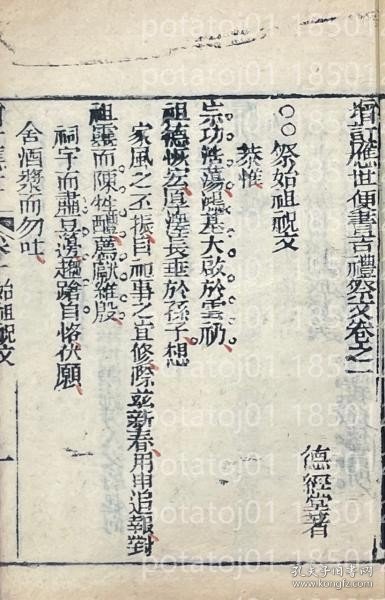 增訂應世便書吉禮祭文卷之一
德經堂著
○○祭始祖祝文
恭惟
宗功浩蕩鴻基大啟於雲礽
祖德恢宏厚澤長垂於孫子想
家風之丕振自祀事之宜修際茲新春用申追報對
祖靈而陳牲醴薦獻維殷
祠宇而肅豆籩趨蹌自恪伏願
舍酒漿而勿吐
始祖祝文
一
potatoj01 18501
孔夫子旧书网